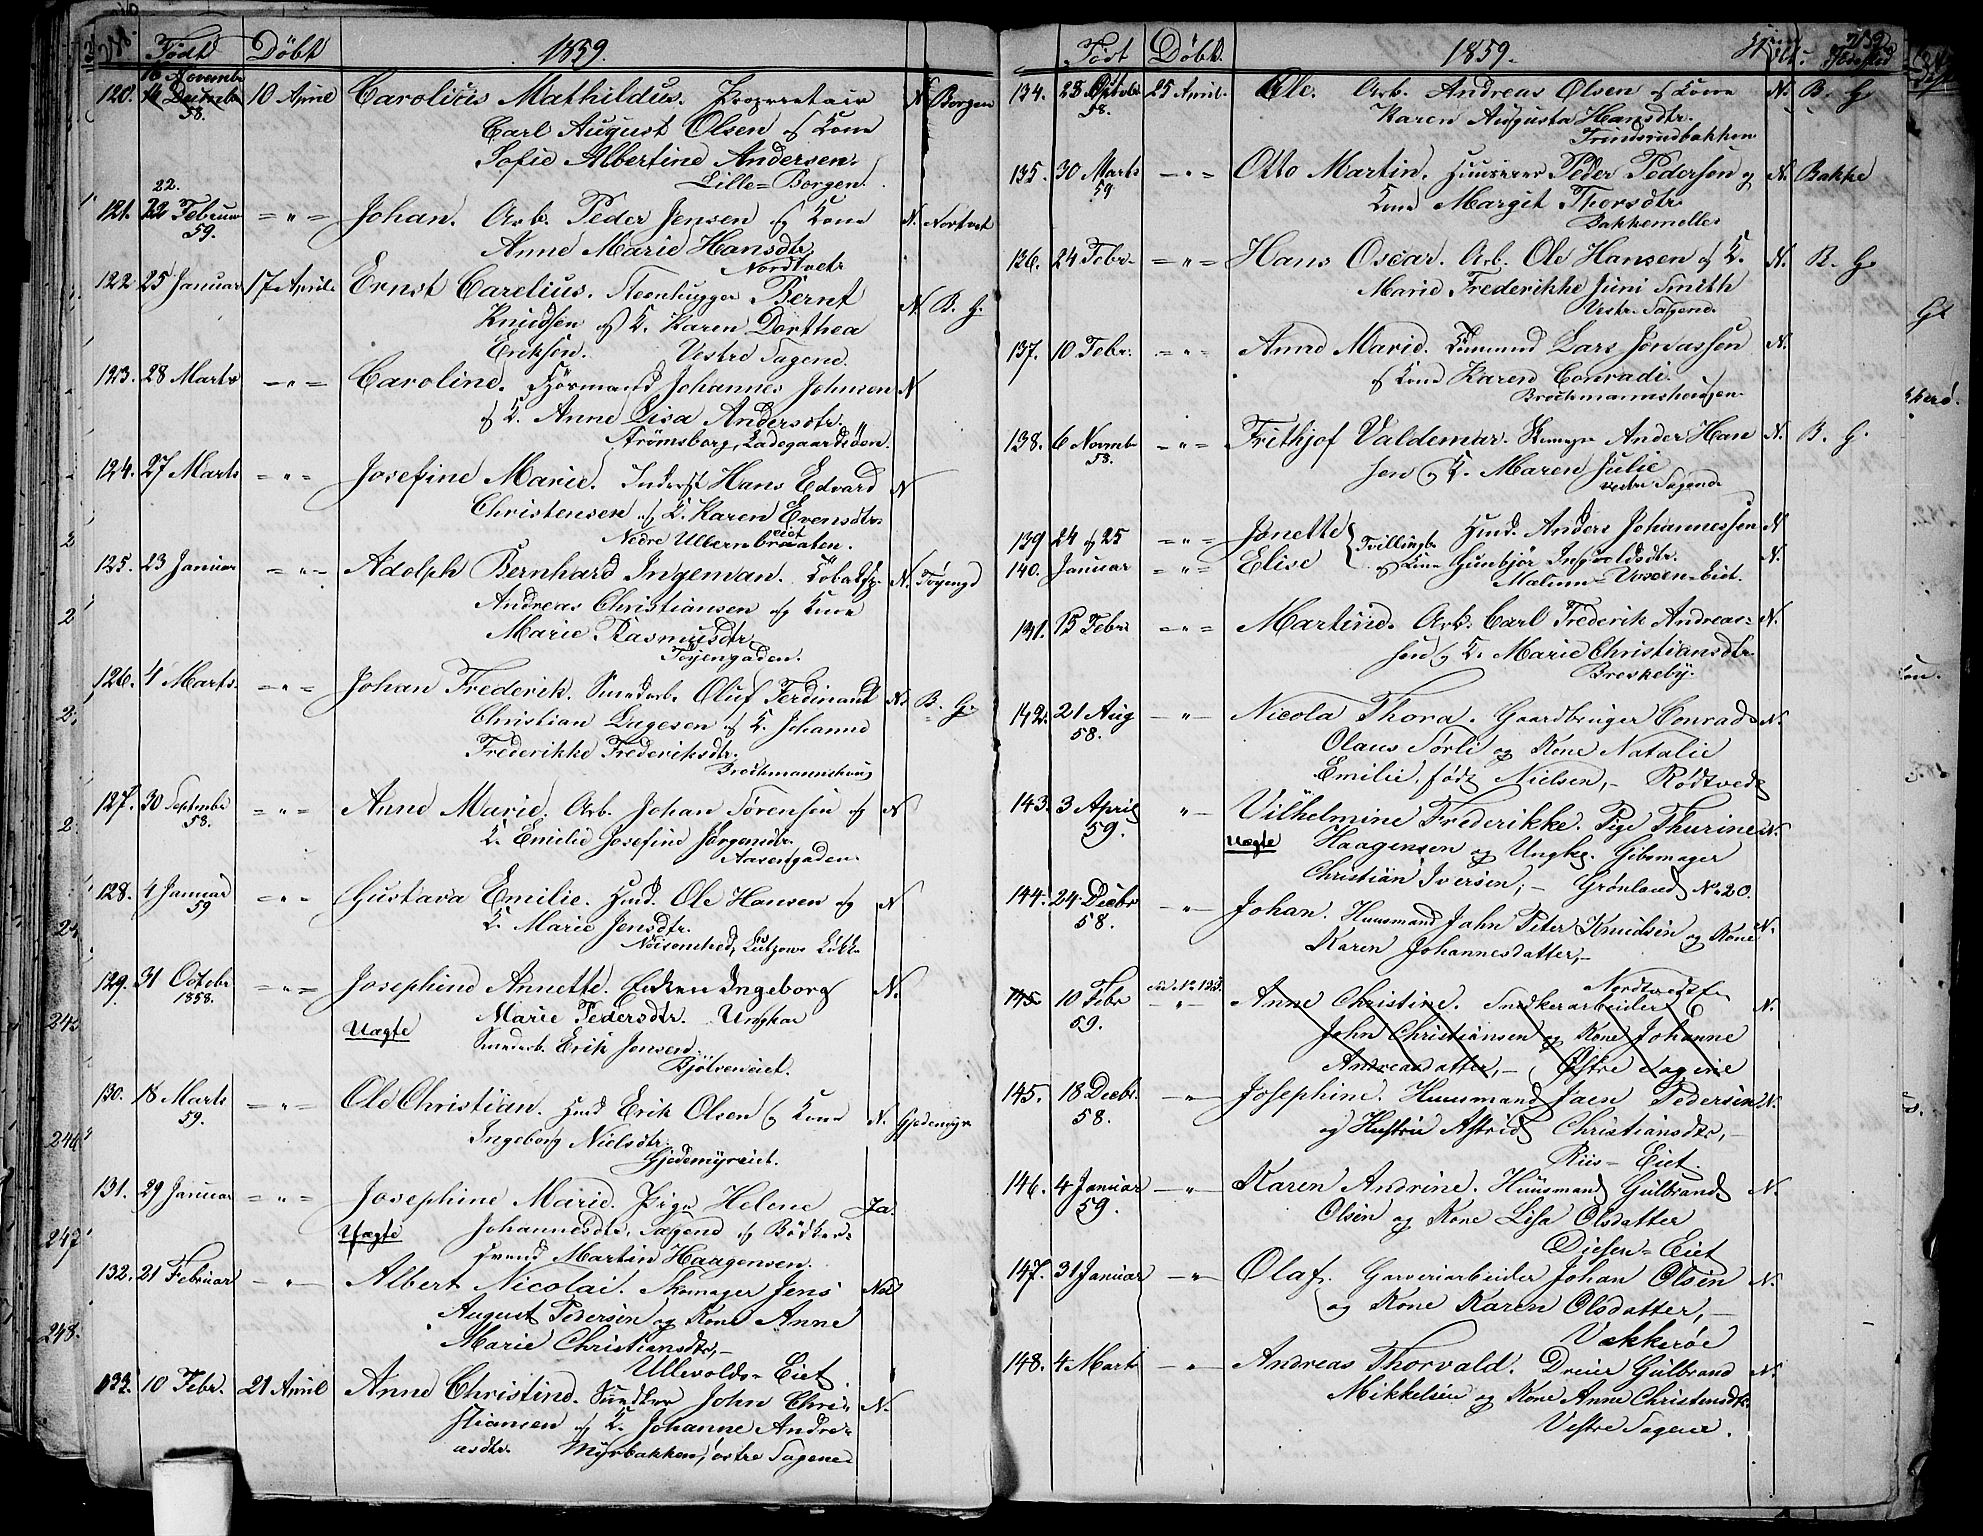 Født Døbt 1859.
120. 16 Novembr 10 April Carolius Mathildus. Proprietair N Borgen
58. Carl August Olsen og Kone
Sofie Albertine Andersen.
Lille=Borgen.
121. 22 Februar =„= Johan. Arb. Peder Jensen og Kone N. Nortvet
59. Anne Marie Hansdtr.
Nordtvet.
122 25 Januar 17 April Ernst Carelius. Steenhugger Bernt N B. G.
Knudsen og K. Karen Dorthea
Eriksen. Vestre Sagene.
123. 28 Marts =„= Caroline. Kjørmand Johannes Johnsen N
og K. Anne Lisa Andersdtr.
Strømsborg, Ladegaardsöen.
124. 27 Marts =„= Josefine Marie. Inderst Hans Edvard N
Christensen og K. Karen Evensdtr
Nedre Ullernbraaten.
125. 23 Januar =„= Adolph Bernhard Ingeman. N. Töyengd
Andreas Christiansen og Kone
Marie Rasmusdtr
Töyengaden.
126. 4 Marts. =„= Johan Frederik. Smedarb. Oluf Ferdinant N. B. G.
Christian Lagesen og K. Johanne
Frederikke Frederiksdtr.
Brochmannshaug
127. 30 Septembr =„= Anne Marie. Arb. Johan Sörensen og N
58. K. Emilie Josefine Jörgensdtr.
Aasengaden.
128. 4 Januar =„= Gustava Emilie. Hmd. Ole Hansen og N
59 K. Marie Jensdtr.
Nöisomhed, Lützows Løkke
129. 31 Octobr =„= Josephine Annette. Enken Ingeborg N.
1858. Marie Pedersdtr. Ungkar
Uægte Smedarb. Erik Jensen.
Bjölseneiet.
130. 18 Marts =„= Ole Christian. Hmd Erik Olsen og Kone N. Gjedemyr
59. Ingeborg Nielsdtr.
Gjedemyreiet.
131. 29 Januar =„= Josephine Marie. Pige Helene Ja.
Uægte Johannesdtr. Sagene og Bödker=
svend Martin Haagensen.
132. 21 Februar —„— Albert Nicolai. Skomager Jens Nei
August Pedersen og Kone Anne
Marie Christiansdtr,—
Ullevolds=Eiet.
133. 10 Febr. 21 April Anne Christine. Snedker John Chri= N.
stiansen og K. Johanne Andre=
asdtr. Myrbakken, østre Sagene
Født Døbt. 1859. Fødested
134. 23 Octobr 25 April. Ole. Arb. Andreas Olsen og Kone N. B. G
58. Karen Augusta Hansdtr.
Trindsrudbakken
135. 30 Marts —„= Otto Martin. Huuseier Peder Pedersen og N. Bakke
59 Kone Margit Thorsdtr
Bakkemøllen
136. 24 Febr. =„= Hans Oscar. Arb. Ole Hansen og K. N. B. G.
Marie Frederikke Juni Smith
Vestre Sagene.
137. 10 Febr. =„= Anne Marie. Lars Jonassen N.
og Kone Karen Conradi.
Brochmannshougen.
138. 6 Novmb =„= Frithjof Valdemar. Ander Han N. B. G.
58. sen og K. Maren Julie
vestre Sagene
139 24 og 25 =„= Jonette Tvillinge Hmd. Anders Johannessen N
140. Januar =„= Elise og Kone Gunbjör Ingvoldsdtr. N.
Malum=Voxen=Eiet.
141. 15 Febr. =„= Martine. Arb. Carl Frederik Andreas= N.
sen og K. Marie Christiansdtr
Breskeby.
142. 21 Aug —„— Nicola Thora. Gaardbruger Conrad N.
58. Olaus Sørli og Kone Natalie
Emilie, född Nielsen,— Rödtvedt
143. 3 April „ Vilhelmine Frederikke. Pige Thurine N.
59. Uægte Haagensen og Ungkr. Gibsmager
Christian Iversen,— Grønland No 20.
144. 24 Decbr —„— Johan. Huusmand John Peter Knudsen og Kone N.
58. Karen Johannesdatter,—
Nordtvedt
145 10 Febr see No 133. Anne Christine. Snedkerarbeider N.
59. John Christiansen og Kone Johanne
Andreasdatter,— Østre Sagene
145. 18 Decbr. —„— Josephine. Huusmand Jaen Pedersen N.
58. og Hustru Astrid Christiansdtr,—
Riis=Eiet.
146. 4 Januar —„— Karen Andrine. Huusmand Gulbrand N.
59. Olsen og Kone Lisa Olsdatter
Diesen=Eiet
147. 31 Januar —„— Olaf. Garveriarbeider Johan Olsen N.
og Kone Karen Olsdatter,—
Vækkerøe
148. 4 Marts —„— Andreas Thorvald. Dreier Gulbrand N.
Mikkelsen og Kone Anne Christensdtr.
Vestre Sagene.